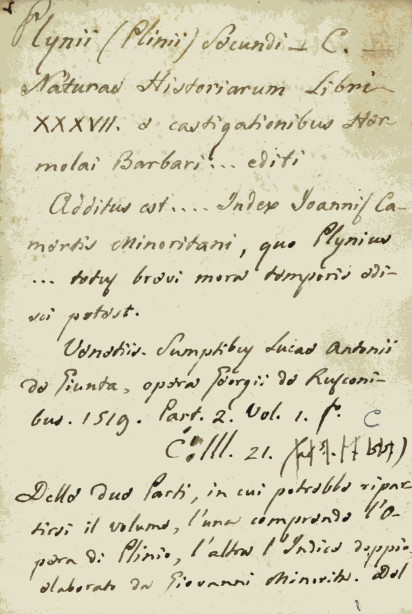 Plynii (Plinii) Secundi - C. -
Naturae Historiarum Libri
XXXVII. e castigationibus Her-
molai Barbari ... editi
Additus est .... Index Joannis Ca-
mertis Minoritani, quo Plynius
... totus brevi mora temporis edi-
sci potest.
Venetiis. Sumptibus Lucae Antonii
de Giunta, opera Georgii de Rusconi-
bus. 1519. Part. 2. Vol. 1. f. C
C. III. 21.
Delle due Parti, in cui potrebbe ripar-
tirsi il volume, l'una comprende l'O-
pera di Plinio, l'altra l'Indice doppio,
elaborato da Giovanni Minorita. Del